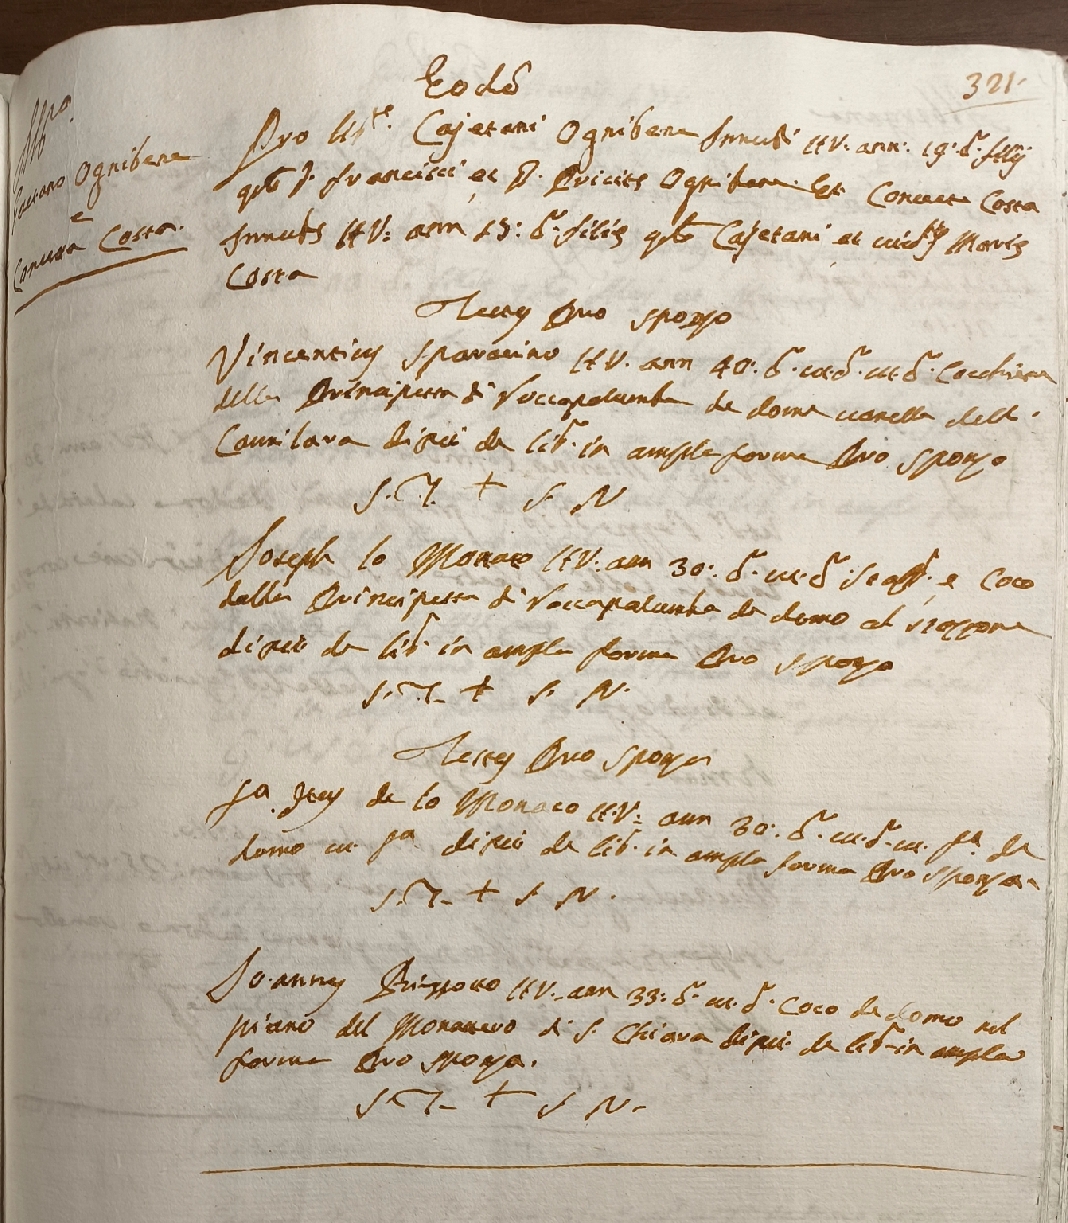 Eodē
321
Gaetano Ognibene
e
Concetta Costa.
Pro libte. Cajetani Ognibene Innubi HV. ann: 19: d. filij
qdm D. Francisci, et D. Ognibene. Et Concetta Costa
Innubs HV: ann 15: d. filie qdm Cajetani et Marie
Costa
Testes Pro sponso
Vincentius Sparacino HV. ann 40: d. cocchiere
della Principessa di Roccapalumba de domo vanella dell
dixit de libt. in ampla forma Pro sponso
S. T. + S. N
Joseph lo Monaco HV. ann 30: d. Staff. e Coco
della Principessa di Roccapalumba de domo al stazzone
dixit de libt. in ampla forma Pro sponso
S. T. + S. N.
Testes Pro sponsa
Ja. de lo Monaco HV: ann 30: d. de
domo ut pa dixit de libt. in ampla forma Pro sponsa
S. T. + S. N.
Joannes HV. ann 33: d. Coco de domo nel
piano del Monastero di S. Chiara dixit de libt. in ampla
forma Pro sponsa.
S. T. + S. N.